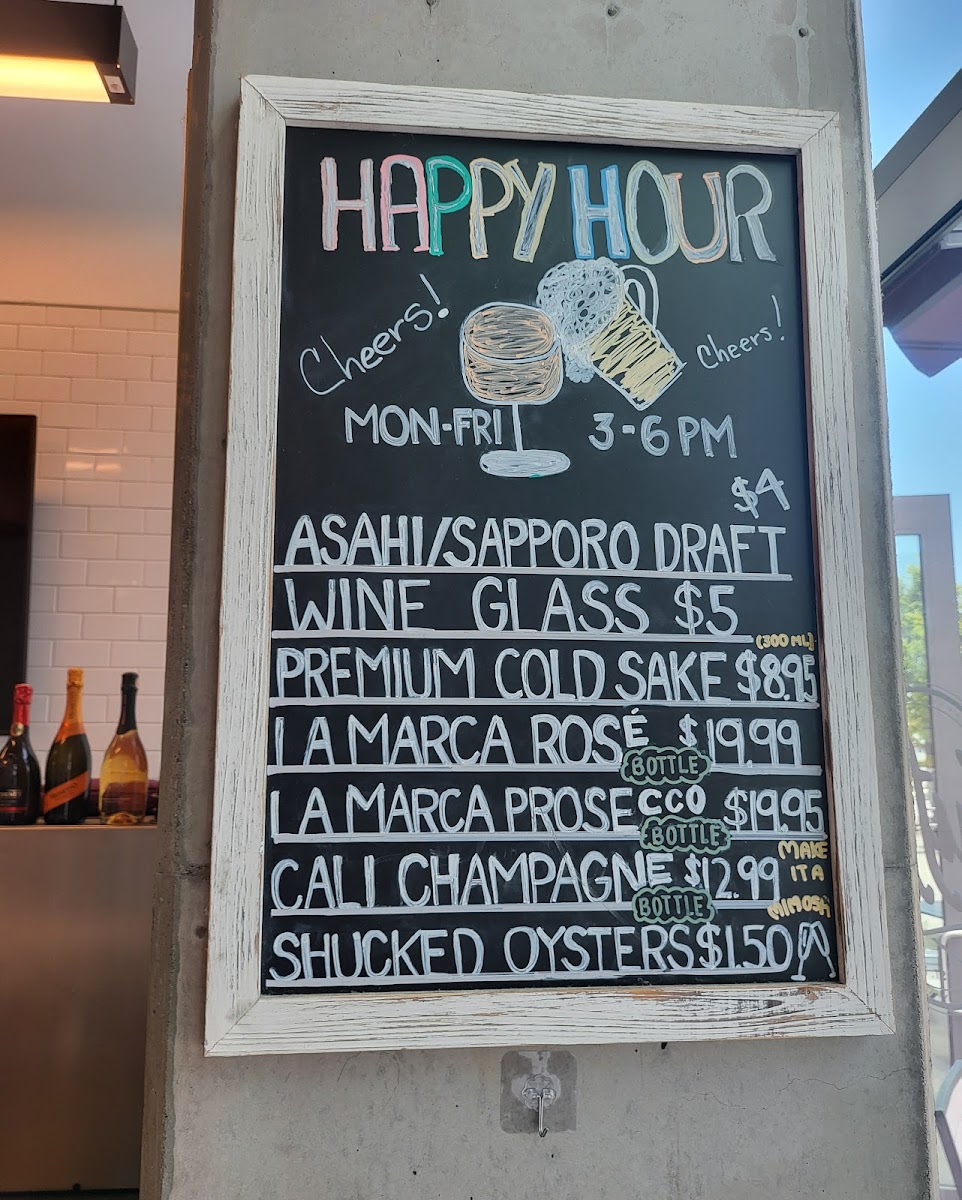 HAPPY HOUR
Cheers!
Cheers!
MON-FRI 3-6 PM
$4
ASAHI/SAPPORO DRAFT
WINE GLASS $5
(300 ML)
PREMIUM COLD SAKE $8.95
LA MARCA ROSÉ $19.99
BOTTLE
LA MARCA PROSECCO $19.95
BOTTLE
CALI CHAMPAGNE $12.99
BOTTLE
MAKE
IT A
MIMOSA
SHUCKED OYSTERS $1.50